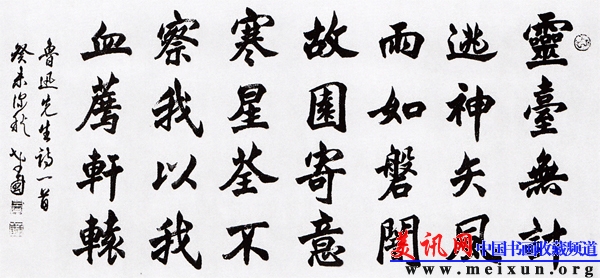 靈臺無計
逃神矢風
雨如磐闇
故園寄意
寒星荃不
察我以我
血薦軒轅
魯迅先生詩一首
癸未深秋
美讯网 中国书画收藏频道
www.meixun.org